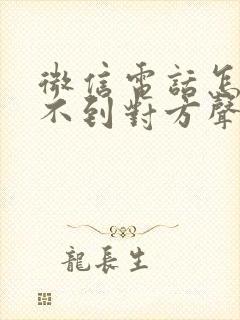 微信電話怎
不到對方聲
龍長生